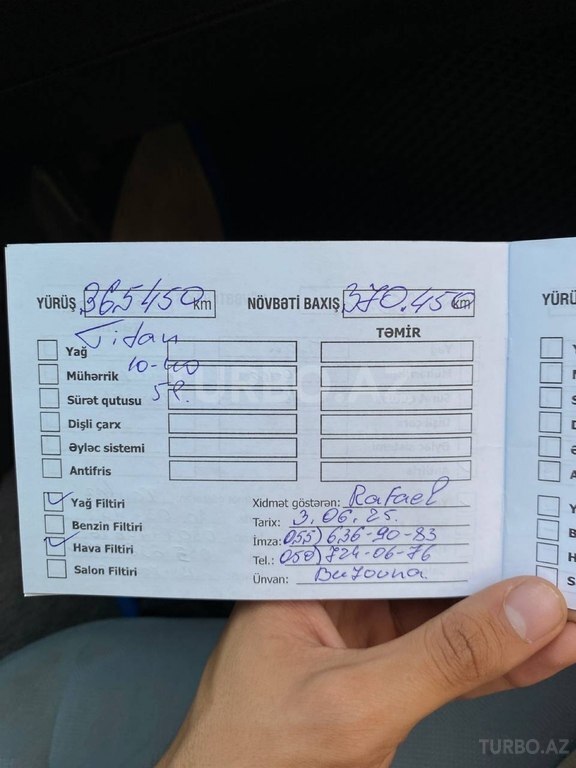 YÜRÜŞ 365450 km NÖVBƏTİ BAXIŞ 370.450 km
Titan
TƏMİR
Yağ
10-40
Mühərrik
5l.
Sürət qutusu
Dişli çarx
Əyləc sistemi
Antifris
Yağ Filtiri
Benzin Filtiri
Hava Filtiri
Salon Filtiri
Xidmət göstərən: Rafael
Tarix: 3.06.25.
İmza: (055) 636-90-83
Tel.: (050) 724-06-76
Ünvan: Buzovna
YÜRÜ
TURBO.AZ
TURBO.AZ